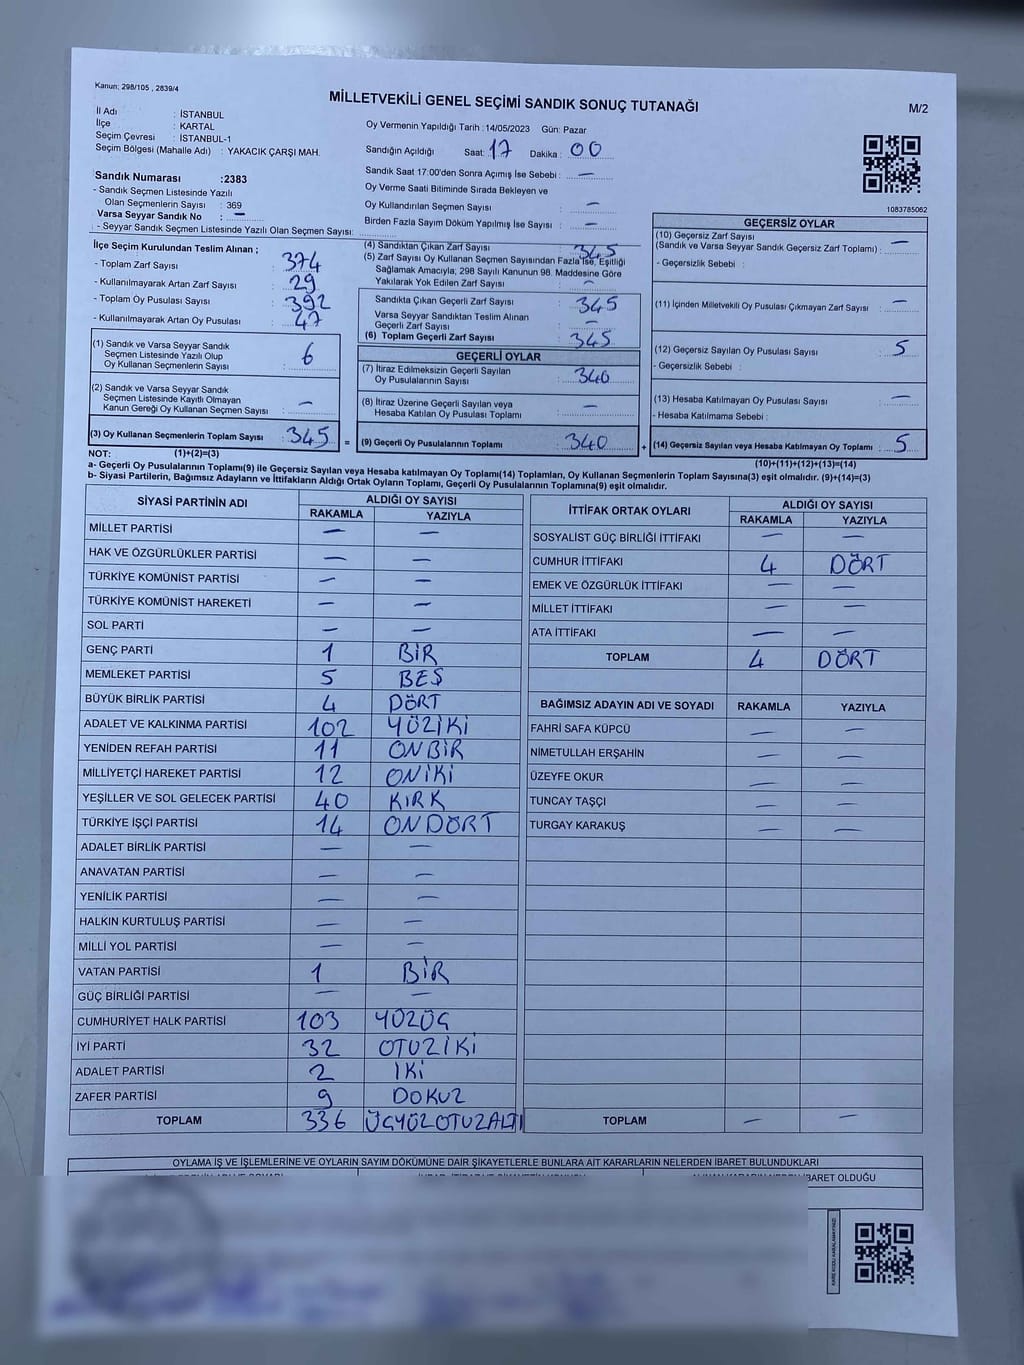 Kanun: 298/105 , 2839/4
MİLLETVEKİLİ GENEL SEÇİMİ SANDIK SONUÇ TUTANAĞI
M/2
İl Adı : İSTANBUL
İlçe : KARTAL
Seçim Çevresi : İSTANBUL-1
Seçim Bölgesi (Mahalle Adı) : YAKACIK ÇARŞI MAH.
Sandık Numarası :2383
- Sandık Seçmen Listesinde Yazılı
Olan Seçmenlerin Sayısı : 369
Varsa Seyyar Sandık No : —
- Seyyar Sandık Seçmen Listesinde Yazılı Olan Seçmen Sayısı:
Oy Vermenin Yapıldığı Tarih : 14/05/2023 Gün: Pazar
Sandığın Açıldığı Saat: 17 Dakika : 00
Sandık Saat 17.00'den Sonra Açımış İse Sebebi : —
Oy Verme Saati Bitiminde Sırada Bekleyen ve
Oy Kullandırılan Seçmen Sayısı : —
Birden Fazla Sayım Döküm Yapılmış İse Sayısı : —
1083785062
İlçe Seçim Kurulundan Teslim Alınan ;
- Toplam Zarf Sayısı : 374
- Kullanılmayarak Artan Zarf Sayısı : 29
- Toplam Oy Pusulası Sayısı : 392
- Kullanılmayarak Artan Oy Pusulası : 47
(1) Sandık ve Varsa Seyyar Sandık
Seçmen Listesinde Yazılı Olup
Oy Kullanan Seçmenlerin Sayısı : 6
(2) Sandık ve Varsa Seyyar Sandık
Seçmen Listesinde Kayıtlı Olmayan
Kanun Gereği Oy Kullanan Seçmen Sayısı : —
(3) Oy Kullanan Seçmenlerin Toplam Sayısı : 345
(4) Sandıktan Çıkan Zarf Sayısı : 345
(5) Zarf Sayısı Oy Kullanan Seçmen Sayısından Fazla İse, Eşitliği
Sağlamak Amacıyla; 298 Sayılı Kanunun 98. Maddesine Göre
Yakılarak Yok Edilen Zarf Sayısı : —
Sandıkta Çıkan Geçerli Zarf Sayısı : 345
Varsa Seyyar Sandıktan Teslim Alınan
Geçerli Zarf Sayısı : —
(6) Toplam Geçerli Zarf Sayısı : 345
GEÇERLİ OYLAR
(7) İtiraz Edilmeksizin Geçerli Sayılan
Oy Pusulalarının Sayısı : 340
(8) İtiraz Üzerine Geçerli Sayılan veya
Hesaba Katılan Oy Pusulası Toplamı : —
= (9) Geçerli Oy Pusulalarının Toplamı : 340
GEÇERSİZ OYLAR
(10) Geçersiz Zarf Sayısı
(Sandık ve Varsa Seyyar Sandık Geçersiz Zarf Toplamı) : —
- Geçersizlik Sebebi :
(11) İçinden Milletvekili Oy Pusulası Çıkmayan Zarf Sayısı : —
(12) Geçersiz Sayılan Oy Pusulası Sayısı : 5
- Geçersizlik Sebebi :
(13) Hesaba Katılmayan Oy Pusulası Sayısı : —
- Hesaba Katılmama Sebebi :
+ (14) Geçersiz Sayılan veya Hesaba Katılmayan Oy Toplamı : 5
NOT: (1)+(2)=(3)
(10)+(11)+(12)+(13)=(14)
a- Geçerli Oy Pusulalarının Toplamı(9) ile Geçersiz Sayılan veya Hesaba katılmayan Oy Toplamı(14) Toplamları, Oy Kullanan Seçmenlerin Toplam Sayısına(3) eşit olmalıdır. (9)+(14)=(3)
b- Siyasi Partilerin, Bağımsız Adayların ve İttifakların Aldığı Ortak Oyların Toplamı, Geçerli Oy Pusulalarının Toplamına(9) eşit olmalıdır.
SİYASİ PARTİNİN ADI ALDIĞI OY SAYISI
RAKAMLA YAZIYLA
MİLLET PARTİSİ — —
HAK VE ÖZGÜRLÜKLER PARTİSİ — —
TÜRKİYE KOMÜNİST PARTİSİ — —
TÜRKİYE KOMÜNİST HAREKETİ — —
SOL PARTİ — —
GENÇ PARTİ 1 BİR
MEMLEKET PARTİSİ 5 BEŞ
BÜYÜK BİRLİK PARTİSİ 4 DÖRT
ADALET VE KALKINMA PARTİSİ 102 YÜZİKİ
YENİDEN REFAH PARTİSİ 11 ONBİR
MİLLİYETÇİ HAREKET PARTİSİ 12 ONİKİ
YEŞİLLER VE SOL GELECEK PARTİSİ 40 KIRK
TÜRKİYE İŞÇİ PARTİSİ 14 ONDÖRT
ADALET BİRLİK PARTİSİ — —
ANAVATAN PARTİSİ — —
YENİLİK PARTİSİ — —
HALKIN KURTULUŞ PARTİSİ — —
MİLLİ YOL PARTİSİ — —
VATAN PARTİSİ 1 BİR
GÜÇ BİRLİĞİ PARTİSİ — —
CUMHURİYET HALK PARTİSİ 103 YÜZÜÇ
İYİ PARTİ 32 OTUZİKİ
ADALET PARTİSİ 2 İKİ
ZAFER PARTİSİ 9 DOKUZ
TOPLAM 336 ÜÇYÜZOTUZALTI
İTTİFAK ORTAK OYLARI ALDIĞI OY SAYISI
RAKAMLA YAZIYLA
SOSYALİST GÜÇ BİRLİĞİ İTTİFAKI — —
CUMHUR İTTİFAKI 4 DÖRT
EMEK VE ÖZGÜRLÜK İTTİFAKI — —
MİLLET İTTİFAKI — —
ATA İTTİFAKI — —
TOPLAM 4 DÖRT
BAĞIMSIZ ADAYIN ADI VE SOYADI RAKAMLA YAZIYLA
FAHRİ SAFA KÜPCÜ — —
NİMETULLAH ERŞAHİN — —
ÜZEYFE OKUR — —
TUNCAY TAŞÇI — —
TURGAY KARAKUŞ — —
TOPLAM — —
OYLAMA İŞ VE İŞLEMLERİNE VE OYLARIN SAYIM DÖKÜMÜNE DAİR ŞİKAYETLERLE BUNLARA AİT KARARLARIN NELERDEN İBARET BULUNDUKLARI
İBARET OLDUĞU